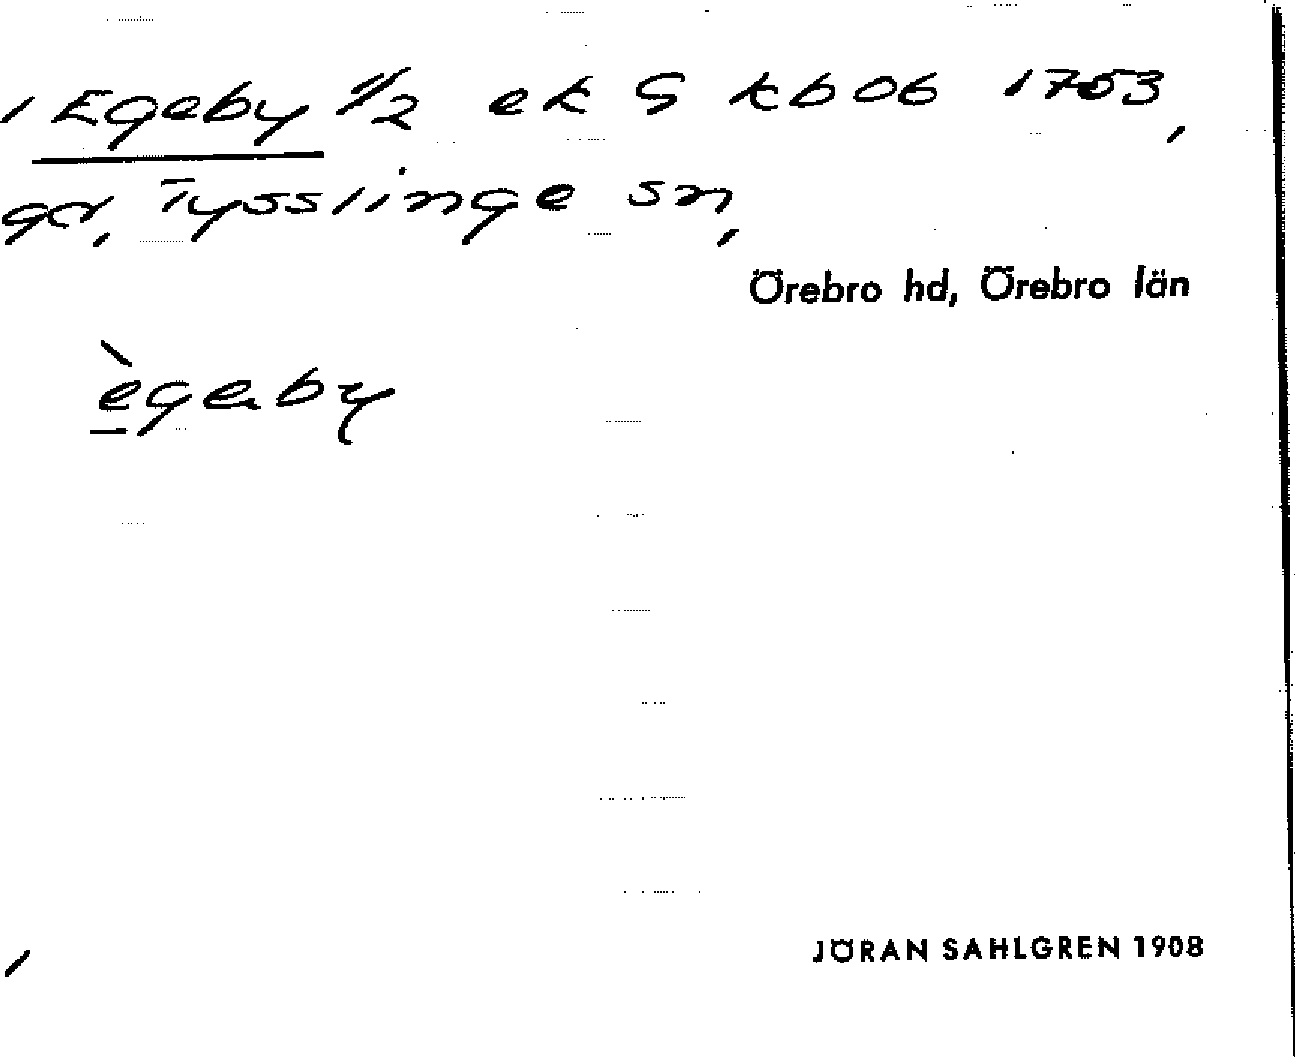 Egeby 1/2 ek G kb 06 1753,
gd, Tysslinge sn,
Örebro hd, Örebro län
ègeby
JÖRAN SAHLGREN 1908